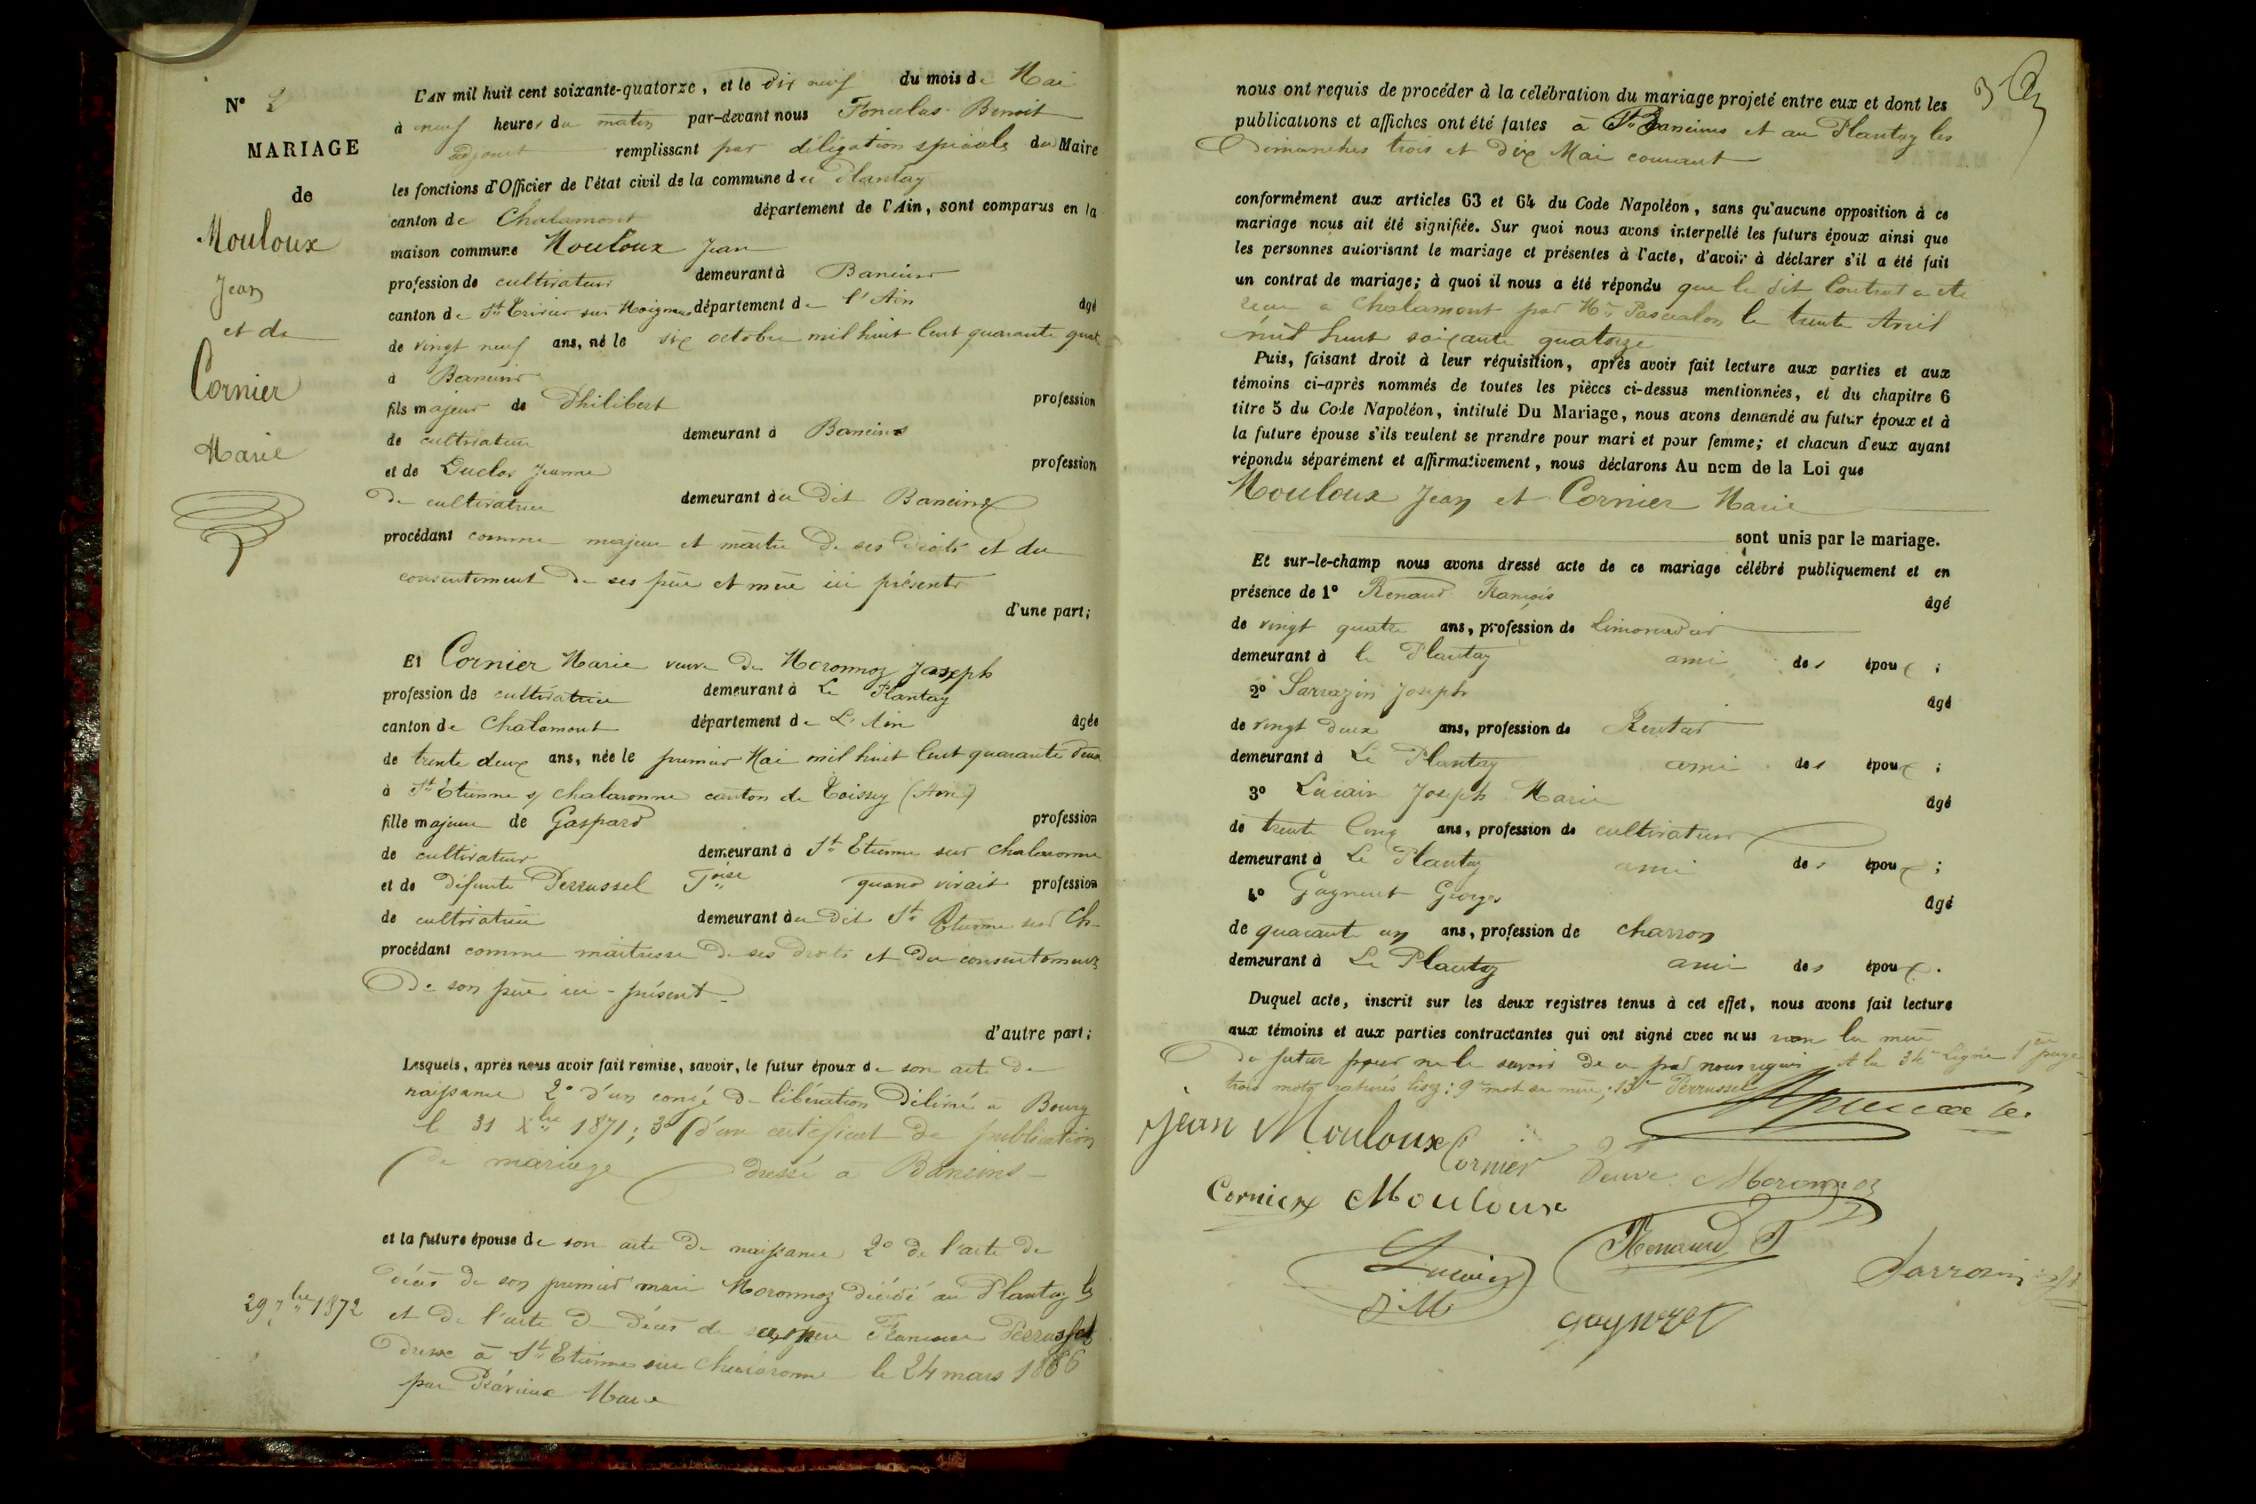 N° 2
MARIAGE
de
Mouloux
Jean
et de
Cornier
Marie
L'AN mil huit cent soixante-quatorze, et le dix neuf du mois de Mai
à neuf heures du matin par-devant nous Benoit
adjoint remplissant par délégation spéciale du Maire
les fonctions d'Officier de l'état civil de la commune du Plantay
canton de Chalamont département de l'Ain, sont comparus en la
maison commune Mouloux Jean
profession de cultivateur demeurant à Baneins
canton de St Trivier sur Moignans département de l'Ain âgé
de vingt neuf ans, né le six octobre mil huit cent quarante quatre
à Baneins
fils majeur de Philibert profession
de cultivateur demeurant à Baneins
et de Duclos Jeanne profession
de cultivatrice demeurant au dit Baneins
procédant comme majeur et maître de ses droits et du
consentement de ses père et mère ici présents
d'une part;
Et Cornier Marie veuve de Moronnoz Joseph
profession de cultivatrice demeurant à Le Plantay
canton de Chalamont département de L'Ain âgée
de trente deux ans, née le premier Mai mil huit cent quarante deux
à St Étienne s/ Chalaronne canton de Toissey (Ain)
fille majeure de Gaspard profession
de cultivateur demeurant à St Etienne sur Chalaronne
et de défunte Perrussel Fçoise quand vivait profession
de cultivatrice demeurant au dit St Etienne sur Ch.
procédant comme maîtresse de ses droits et du consentement
de son père ici-présent
d'autre part;
Lesquels, après nous avoir fait remise, savoir, le futur époux de son acte de
naissance 2° d'un congé de libération délivré à Bourg
le 31 Xbre 1871; 3° d'un certificat de publication
de mariage dressé à Baneins
et la future épouse de son acte de naissance 2° de l'acte de
décès de son premier mari Moronnoz décédé au Plantay le
29 7bre 1872
et de l'acte de décès de sa mère Francoise Perrussel
dressé à St Etienne sur Chalaronne le 24 mars 1866
par Maire
nous ont requis de procéder à la célébration du mariage projeté entre eux et dont les
publications et affiches ont été faites à Baneins et au Plantay les
Dimanches trois et dix Mai courant
conformément aux articles 63 et 64 du Code Napoléon, sans qu'aucune opposition à ce
mariage nous ait été signifiée. Sur quoi nous avons interpellé les futurs époux ainsi que
les personnes autorisant le mariage et présentes à l'acte, d'avoir à déclarer s'il a été fait
un contrat de mariage; à quoi il nous a été répondu que le dit Contrat a été
recu a Chalamont par Me le trente Avril
mil huit soixante quatorze
Puis, faisant droit à leur réquisition, après avoir fait lecture aux parties et aux
témoins ci-après nommés de toutes les pièces ci-dessus mentionnées, et du chapitre 6
titre 5 du Code Napoléon, intitulé Du Mariage, nous avons demandé au futur époux et à
la future épouse s'ils veulent se prendre pour mari et pour femme; et chacun d'eux ayant
répondu séparément et affirmativement, nous déclarons Au nom de la Loi que
Mouloux Jean et Cornier Marie
sont unis par le mariage.
Et sur-le-champ nous avons dressé acte de ce mariage célébré publiquement et en
présence de 1° Renaud François âgé
de vingt quatre ans, profession de Limonadier
demeurant à le Plantay ami des époux;
2° Sarrazin Joseph âgé
de vingt deux ans, profession de Rentier
demeurant à Le Plantay ami des époux;
3° Luciain Joseph Marie âgé
de trente cinq ans, profession de cultivateur
demeurant à Le Plantay ami des époux;
4° Georges âgé
de quarante un ans, profession de charron
demeurant à Le Plantay ami des époux.
Duquel acte, inscrit sur les deux registres tenus à cet effet, nous avons fait lecture
aux témoins et aux parties contractantes qui ont signé avec nous non la mère
du futur pour ne le savoir de ce par nous requis A la 34e Ligne 1re page
trois mots raturés lisez: 9e mot sa mère; 13e Perrussel
Jean Mouloux
Cornier Veuve Moronnoz
Cornier Mouloux
Renaud F
J M